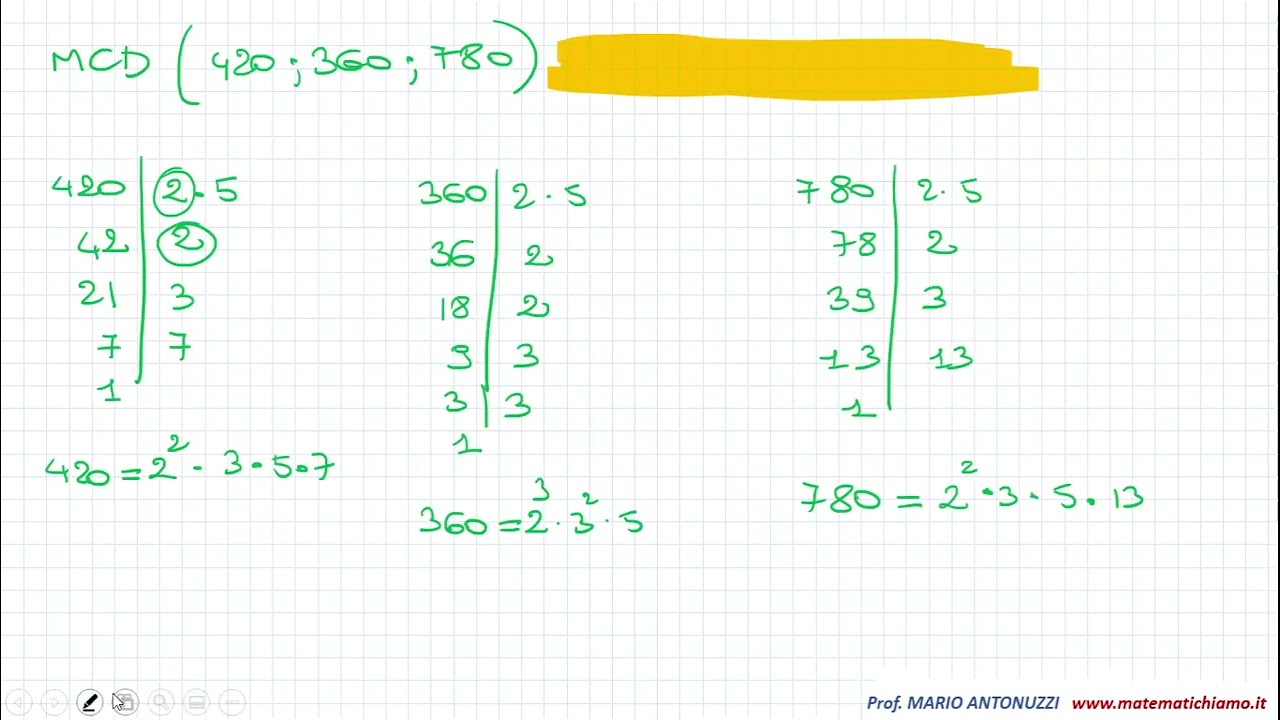 MCD (420 ; 360 ; 780)
420 | 2 · 5
42 | 2
21 | 3
7 | 7
1
420 = 2² · 3 · 5 · 7
360 | 2 · 5
36 | 2
18 | 2
9 | 3
3 | 3
1
360 = 2³ · 3² · 5
780 | 2 · 5
78 | 2
39 | 3
13 | 13
1
780 = 2² · 3 · 5 · 13
Prof. MARIO ANTONUZZI www.matematichiamo.it